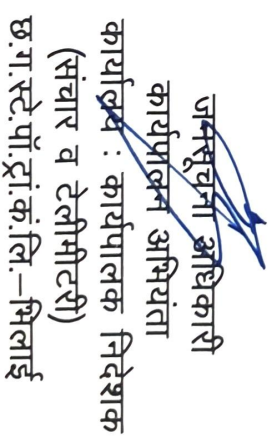 जनसूचना अधिकारी
कार्यपालन अभियंता
कार्यालय : कार्यपालक निदेशक
(संचार व टेलीमीटरी)
छ.ग.स्टे.पॉ.ट्रां.कं.लि.–भिलाई